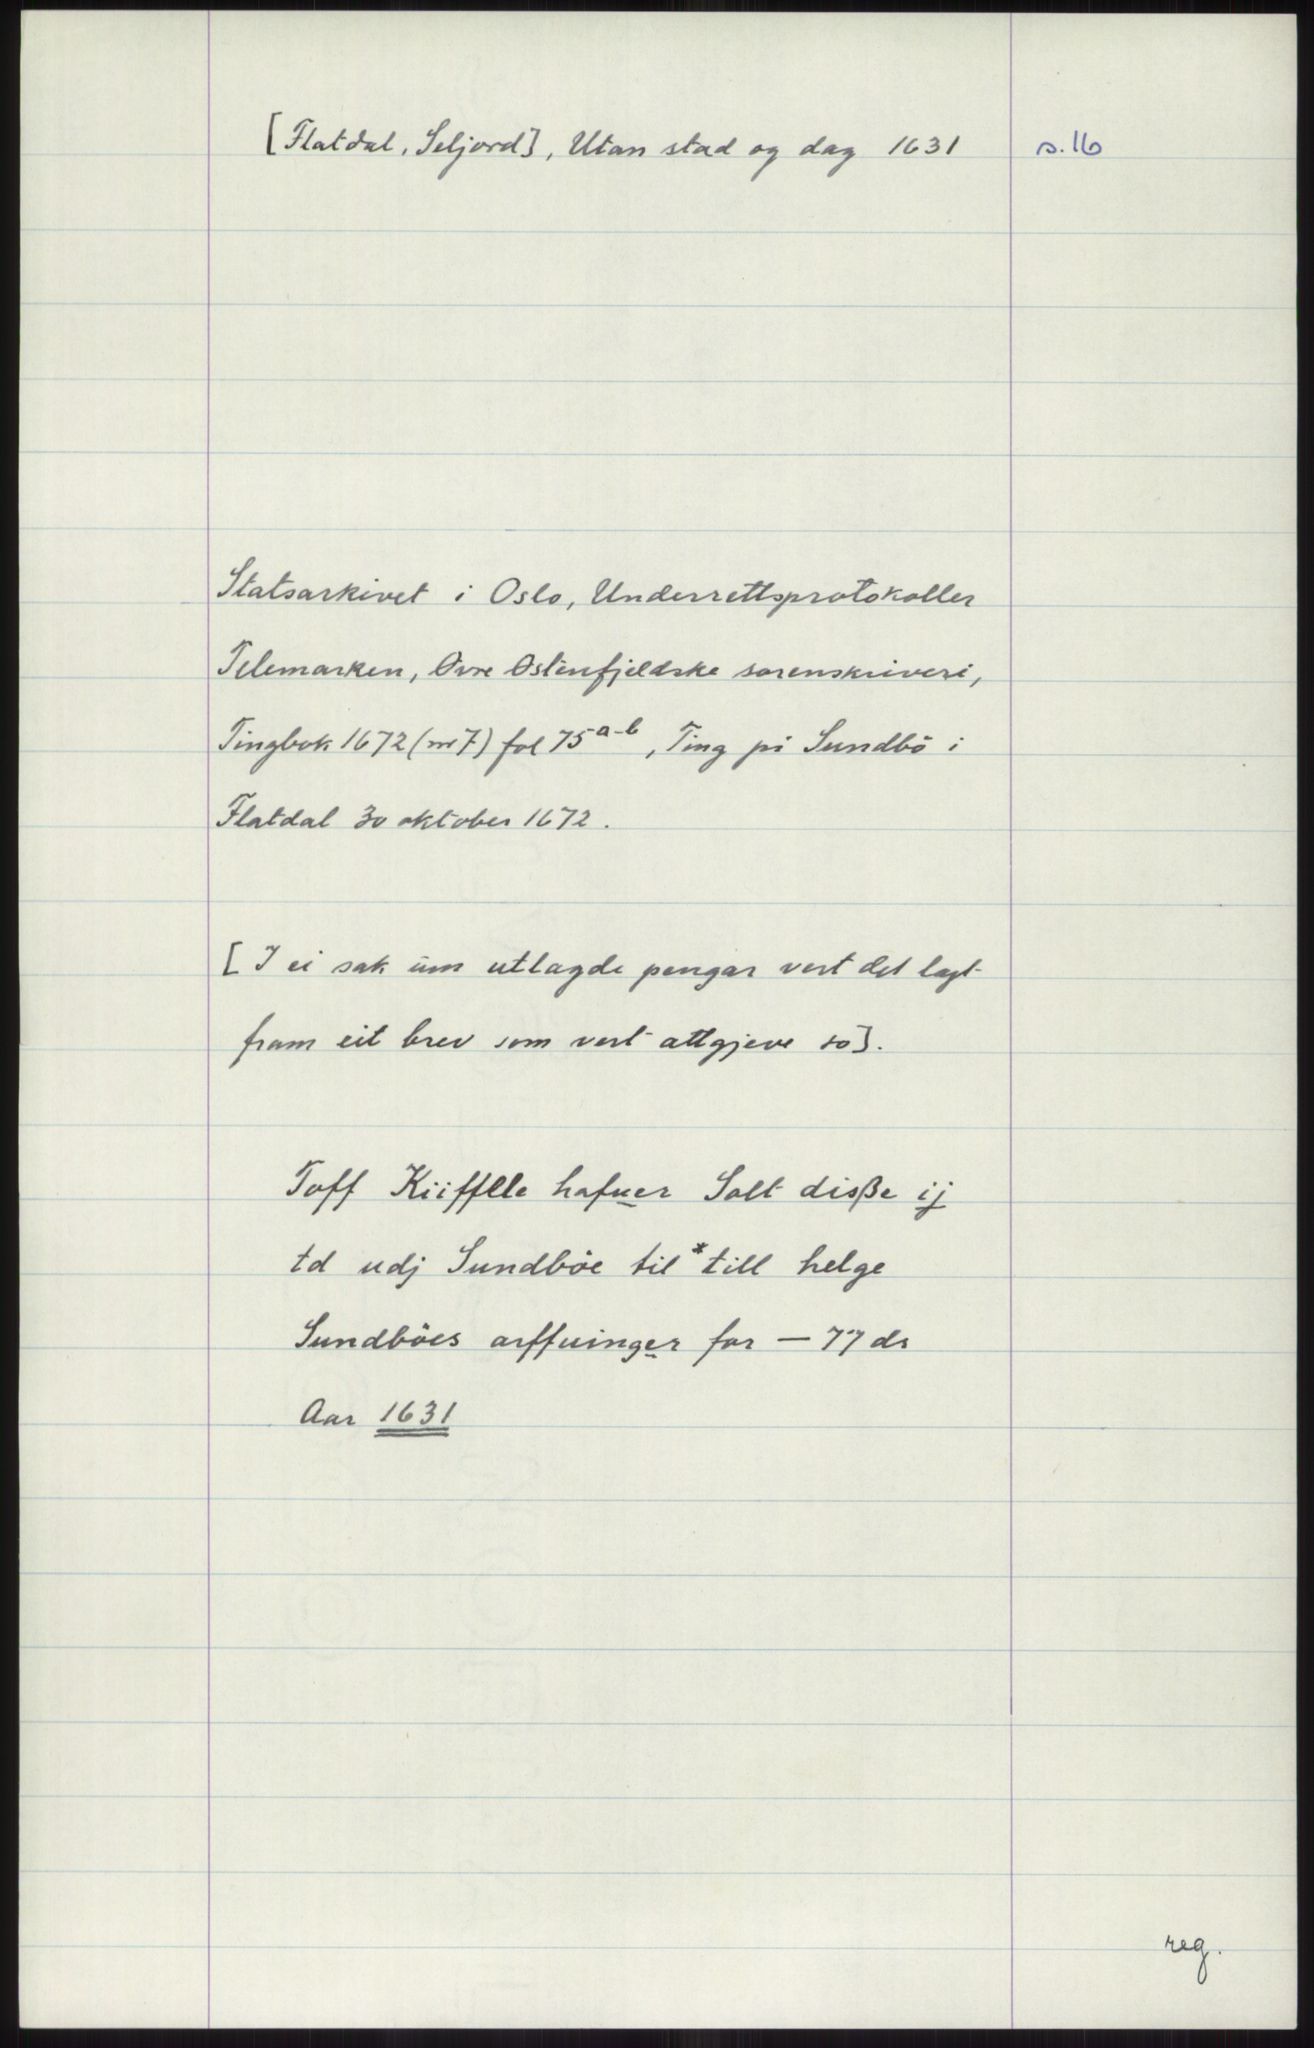 [Flatdal, Seljord], Utan stad og dag 1631 s.16
Statsarkivet i Oslo, Underrettsprotokoller
Telemarken, Øvre Østenfjeldske sorenskriveri,
Tingbok 1672 (nr 7) fol 75 a-b, Ting på Sundbö i
Flatdal 30 oktober 1672.
[I ei sak um utlagde pengar vert det lagt
fram eit brev som vert attgjeve so].
Toff Kiifflle hafuer Solt disße ij
td udj Sundböe til * till helge
Sundböes arffuinger for — 77 dr
Aar 1631
reg.